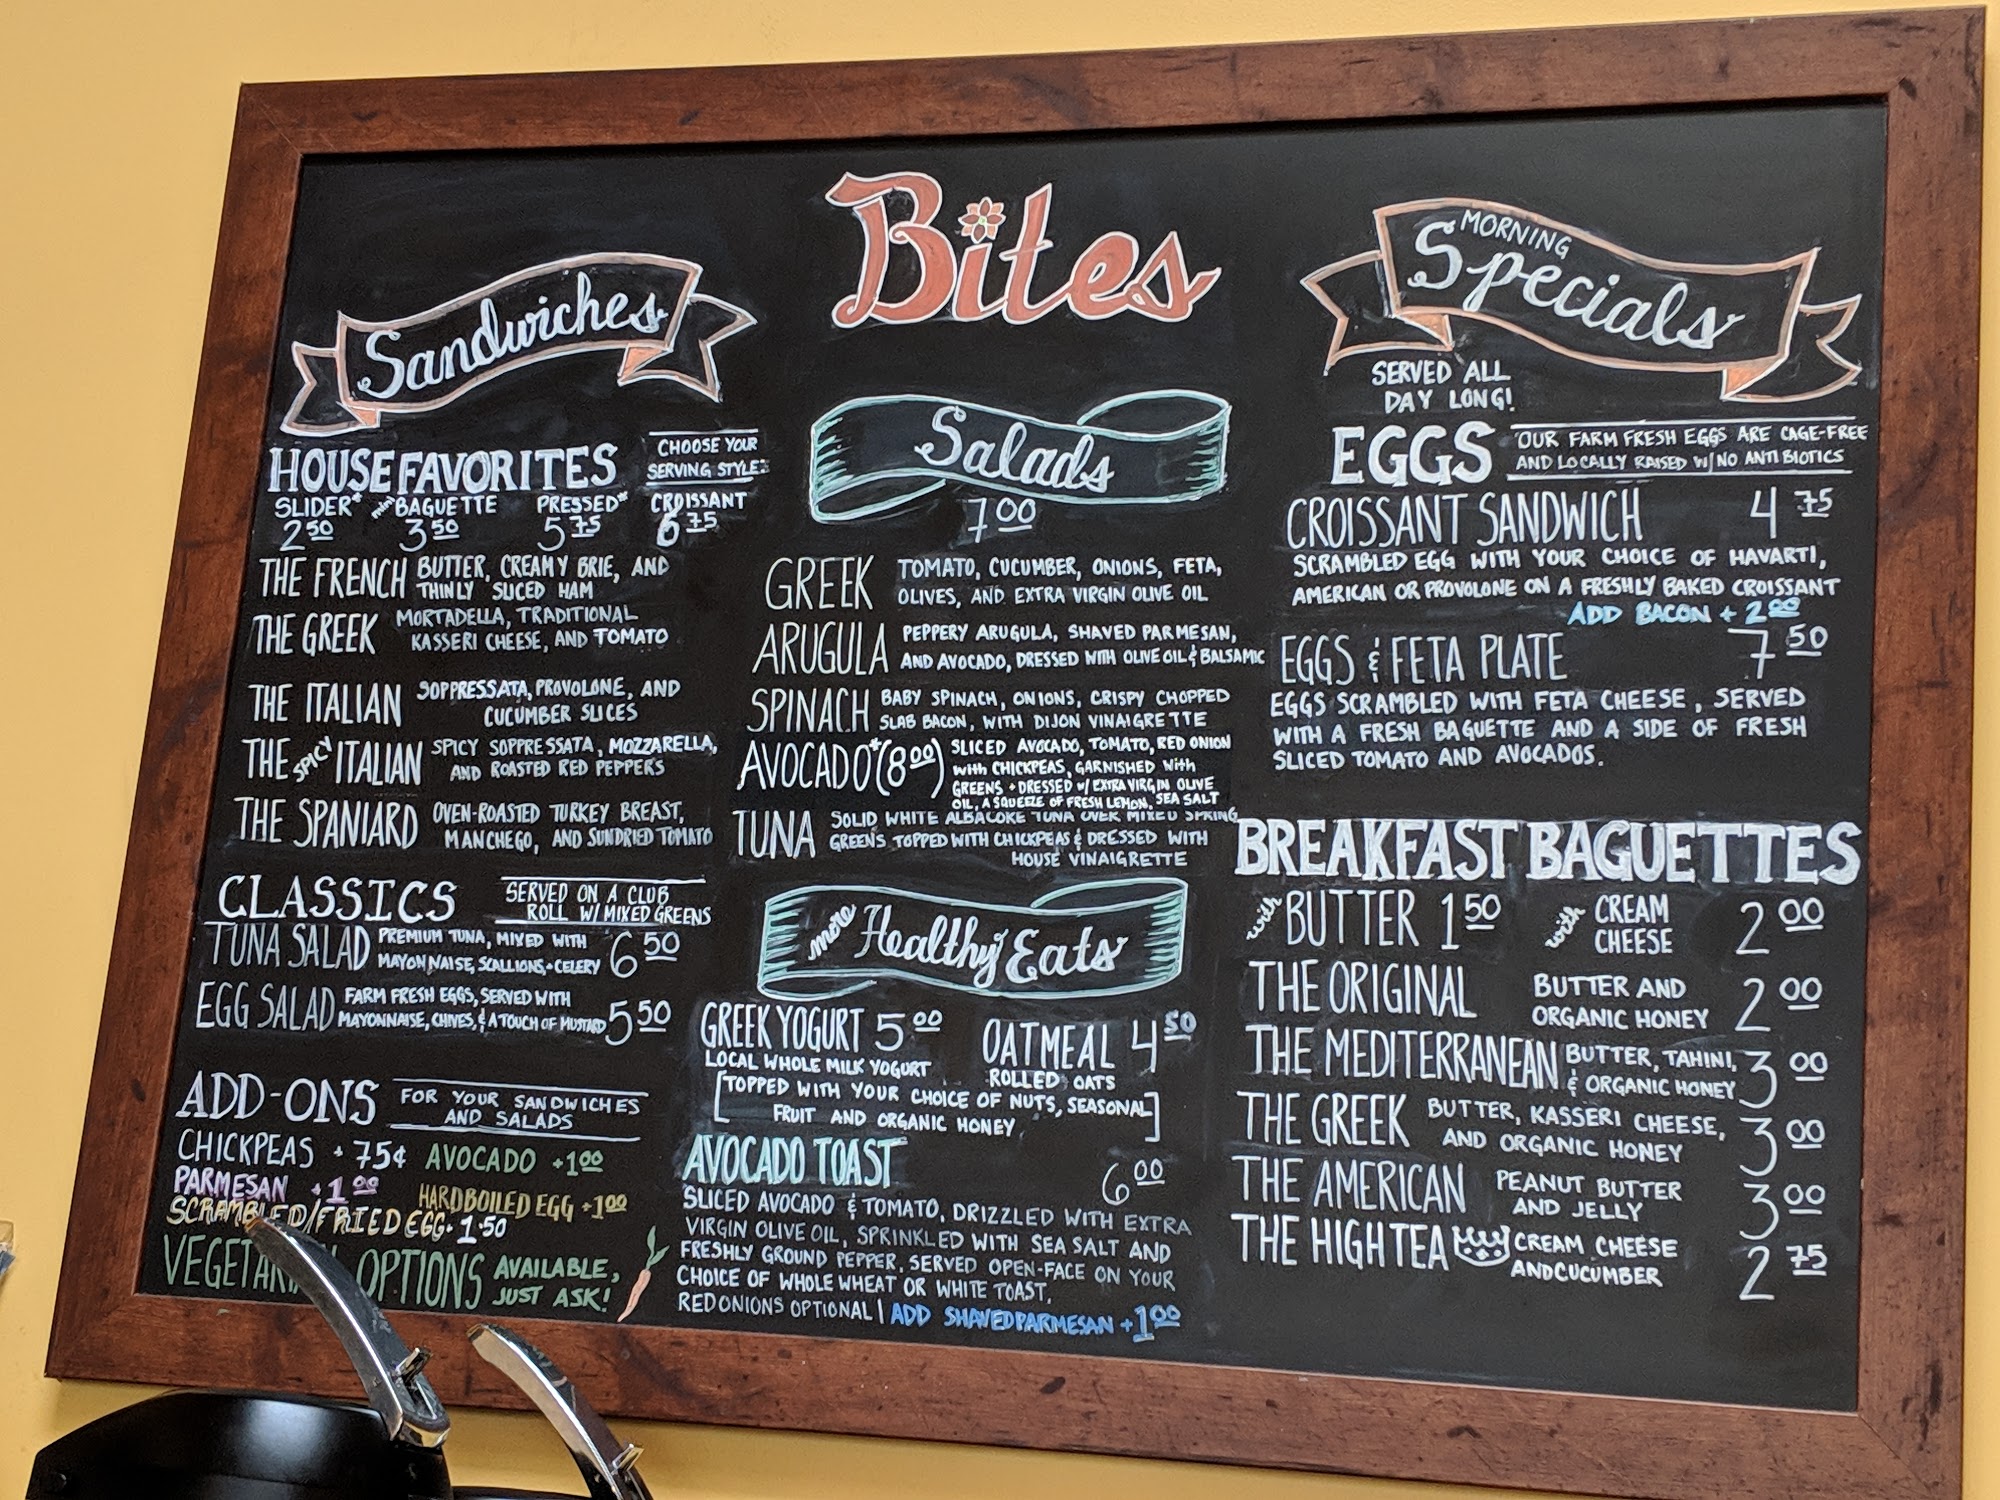 Bites
Sandwiches
HOUSE FAVORITES
CHOOSE YOUR
SERVING STYLE:
SLIDER* mini BAGUETTE PRESSED* CROISSANT
2 50 3 50 5 75 6 75
THE FRENCH BUTTER, CREAMY BRIE, AND
THINLY SLICED HAM
THE GREEK MORTADELLA, TRADITIONAL
KASSERI CHEESE, AND TOMATO
THE ITALIAN SOPPRESSATA, PROVOLONE, AND
CUCUMBER SLICES
THE SPICY ITALIAN SPICY SOPPRESSATA, MOZZARELLA,
AND ROASTED RED PEPPERS
THE SPANIARD OVEN-ROASTED TURKEY BREAST,
MANCHEGO, AND SUNDRIED TOMATO
CLASSICS SERVED ON A CLUB
ROLL W/ MIXED GREENS
TUNA SALAD PREMIUM TUNA, MIXED WITH
MAYONNAISE, SCALLIONS, + CELERY 6 50
EGG SALAD FARM FRESH EGGS, SERVED WITH
MAYONNAISE, CHIVES, & A TOUCH OF MUSTARD 5 50
ADD-ONS FOR YOUR SANDWICHES
AND SALADS
CHICKPEAS + 75¢ AVOCADO +1 00
PARMESAN +1 00 HARDBOILED EGG +1 00
SCRAMBLED/FRIED EGG + 1 50
OPTIONS AVAILABLE,
JUST ASK!
Salads
7 00
GREEK TOMATO, CUCUMBER, ONIONS, FETA,
OLIVES, AND EXTRA VIRGIN OLIVE OIL
ARUGULA PEPPERY ARUGULA, SHAVED PARMESAN,
AND AVOCADO, DRESSED WITH OLIVE OIL & BALSAMIC
SPINACH BABY SPINACH, ONIONS, CRISPY CHOPPED
SLAB BACON, WITH DIJON VINAIGRETTE
AVOCADO* (8 00) SLICED AVOCADO, TOMATO, RED ONION
with CHICKPEAS, GARNISHED with
GREENS + DRESSED w/ EXTRA VIRGIN OLIVE
OIL, A SQUEEZE OF FRESH LEMON, SEA SALT
TUNA SOLID WHITE ALBACORE TUNA OVER MIXED SPRING
GREENS TOPPED WITH CHICKPEAS & DRESSED WITH
HOUSE VINAIGRETTE
more Healthy Eats
GREEK YOGURT 5 00 OATMEAL 4 50
LOCAL WHOLE MILK YOGURT ROLLED OATS
[TOPPED WITH YOUR CHOICE OF NUTS, SEASONAL
FRUIT AND ORGANIC HONEY]
AVOCADO TOAST 6 00
SLICED AVOCADO & TOMATO, DRIZZLED WITH EXTRA
VIRGIN OLIVE OIL, SPRINKLED WITH SEA SALT AND
FRESHLY GROUND PEPPER. SERVED OPEN-FACE ON YOUR
CHOICE OF WHOLE WHEAT OR WHITE TOAST,
RED ONIONS OPTIONAL | ADD SHAVED PARMESAN +1 00
MORNING
Specials
SERVED ALL
DAY LONG!
EGGS OUR FARM FRESH EGGS ARE CAGE-FREE
AND LOCALLY RAISED W/ NO ANTIBIOTICS
CROISSANT SANDWICH 4 75
SCRAMBLED EGG WITH YOUR CHOICE OF HAVARTI,
AMERICAN OR PROVOLONE ON A FRESHLY BAKED CROISSANT
ADD BACON + 2 00
EGGS & FETA PLATE 7 50
EGGS SCRAMBLED WITH FETA CHEESE, SERVED
WITH A FRESH BAGUETTE AND A SIDE OF FRESH
SLICED TOMATO AND AVOCADOS.
BREAKFAST BAGUETTES
with BUTTER 1 50 with CREAM
CHEESE 2 00
THE ORIGINAL BUTTER AND
ORGANIC HONEY 2 00
THE MEDITERRANEAN BUTTER, TAHINI,
& ORGANIC HONEY 3 00
THE GREEK BUTTER, KASSERI CHEESE,
AND ORGANIC HONEY 3 00
THE AMERICAN PEANUT BUTTER
AND JELLY 3 00
THE HIGH TEA CREAM CHEESE
AND CUCUMBER 2 75